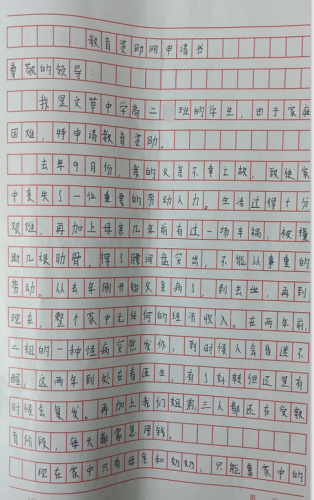 教育资助网申请书
尊敬的领导:
我是文草中学高二 班的学生,由于家庭
困难,特申请教育资助。
去年9月份,我的父亲不幸之故,致使家
中丧失了一位重要的劳动人力。生活过得十分
艰难,再加上母亲几年前有过一场车祸,被撞
断几根肋骨,得了腰间盘突出,不能从事重的
劳动。从去年刚开始父亲病了,到去世,再到
现在,整个家中无任何的经济收入。在两年前,
二姐的一种怪病突然发作,到时候人会昏迷不
醒,这两年到处在看医生,有了好转但还是有
时候会复发。再加上我们姐弟三人都还在受教
育阶段,每天都需要用钱。
现在家中只有母亲和奶奶,只能靠家中的